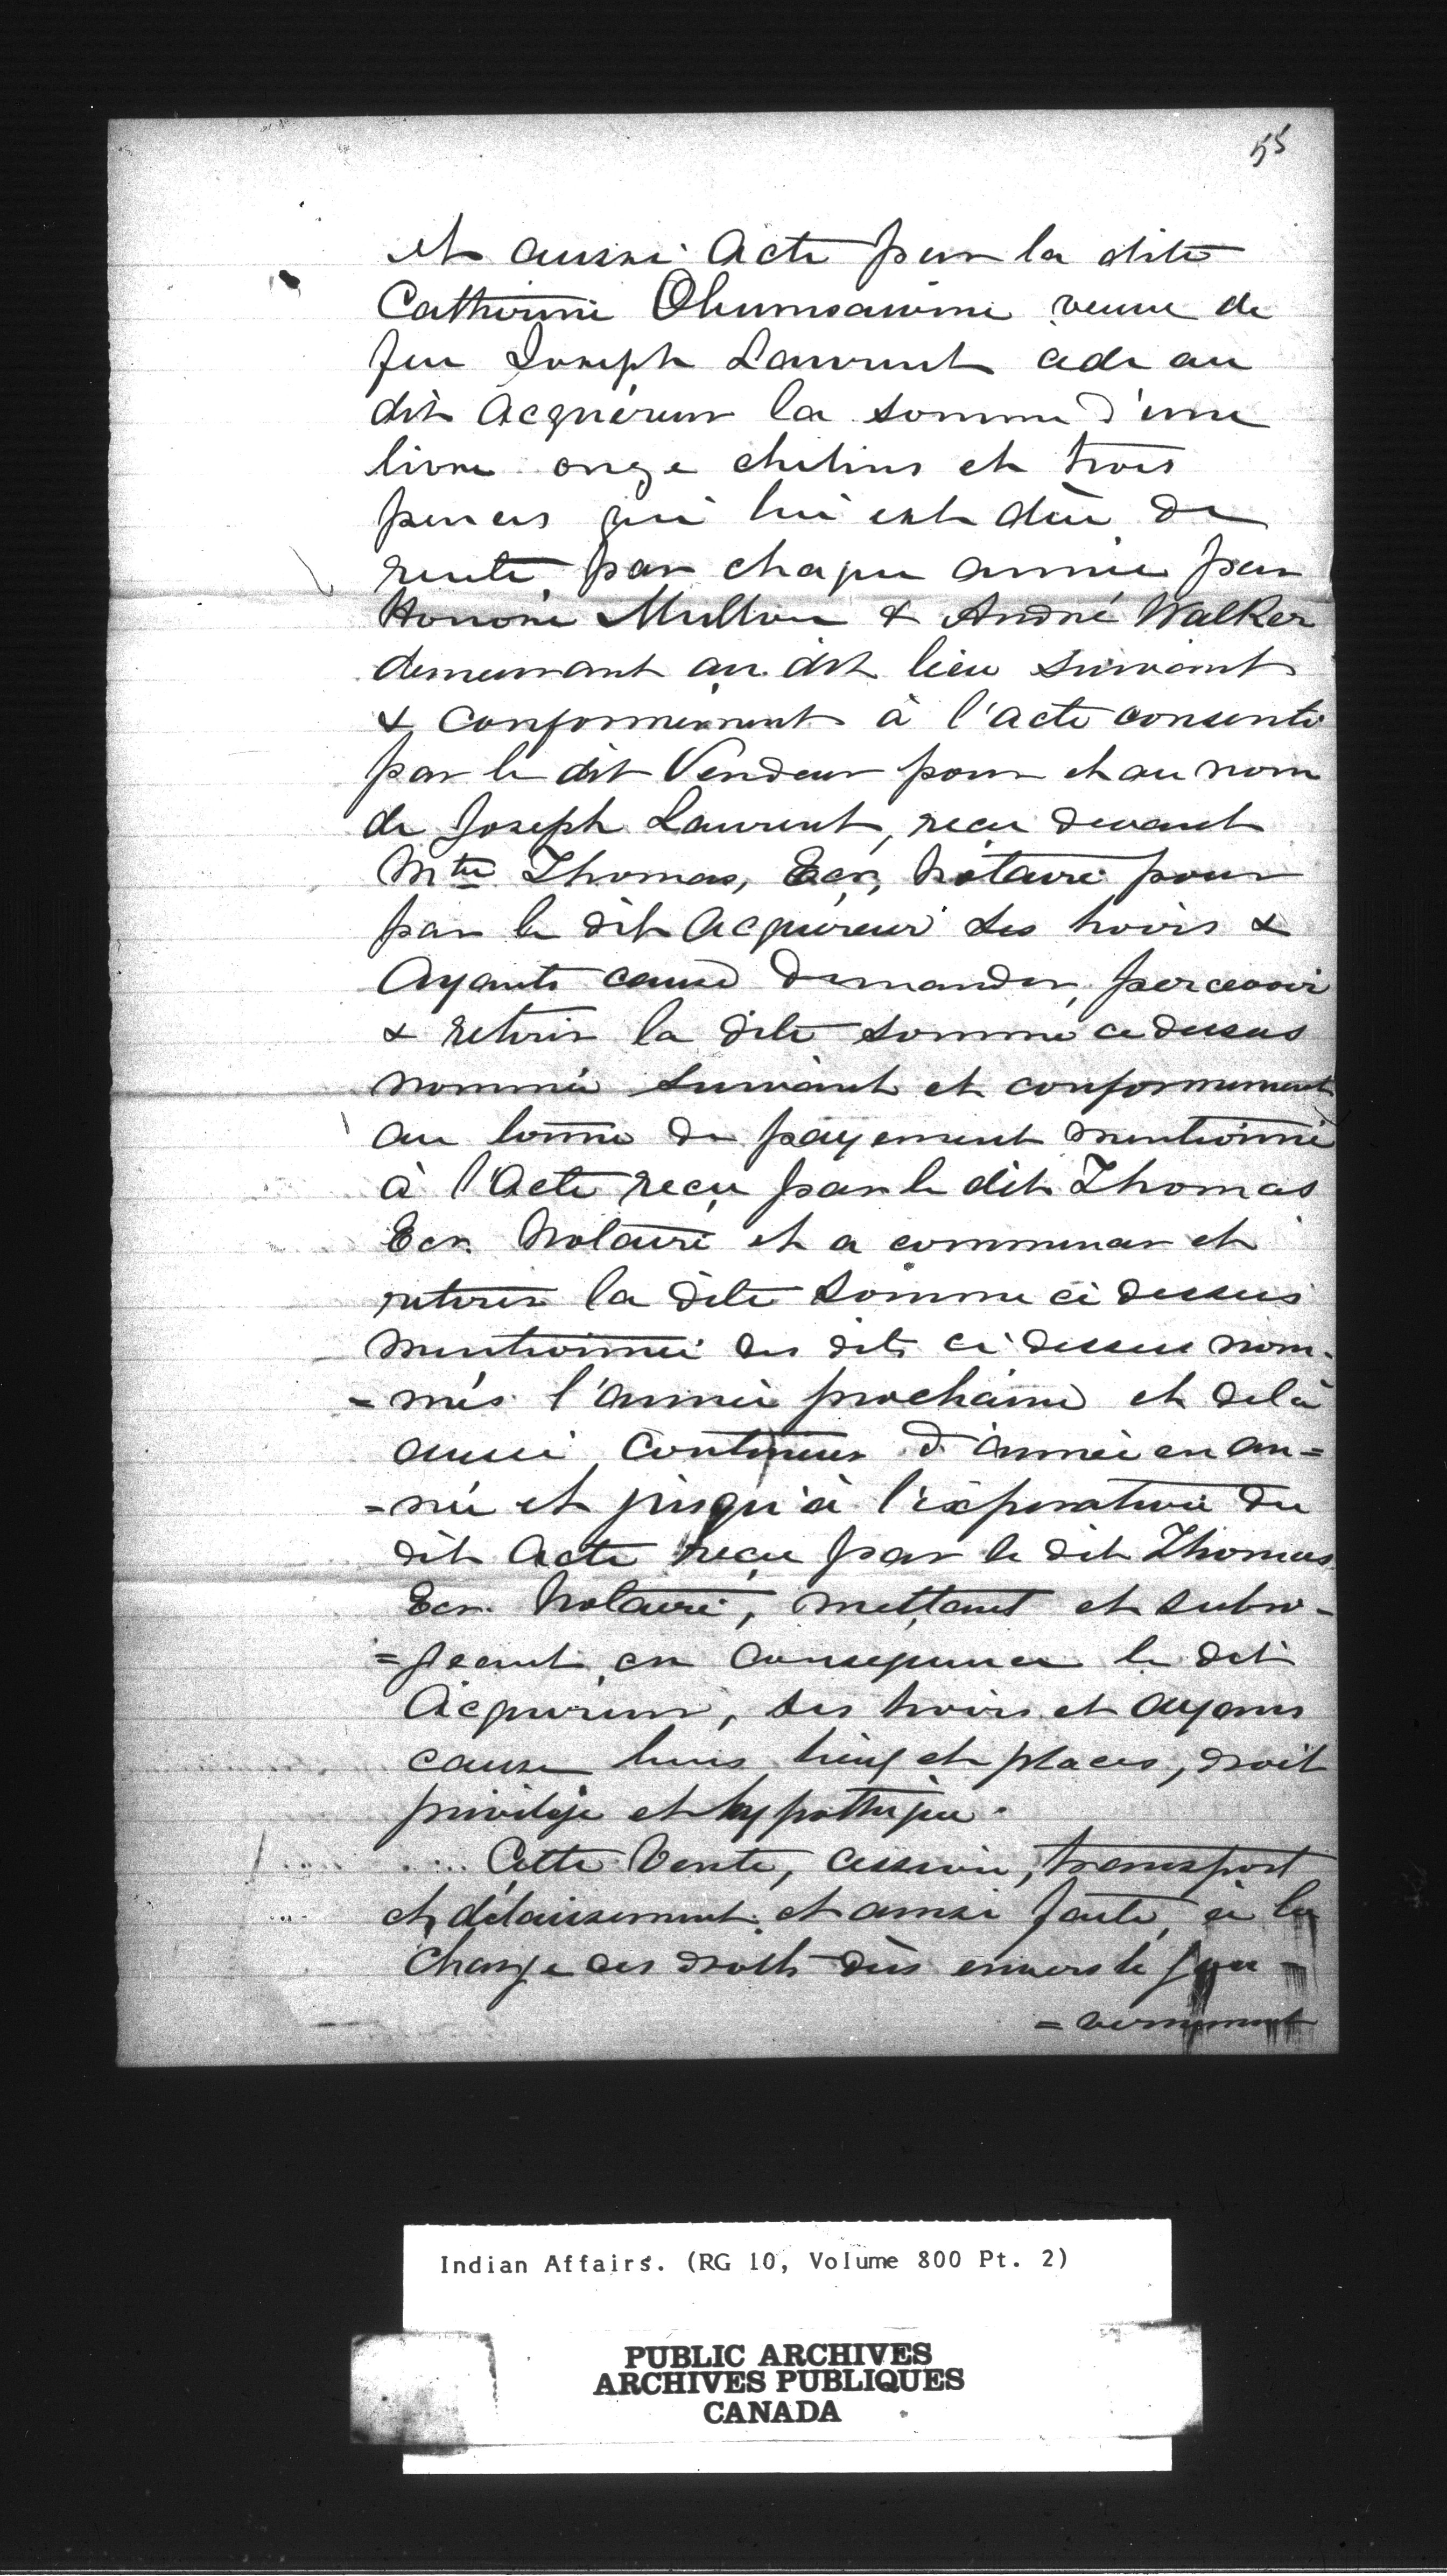 55
et aussi Acte par la dite
Catherine veuve de
feu Joseph Laurent cede au
dit Acquéreur la somme d'une
livre onze chelins et trois
pences qui lui est dûe de
rente par chaque année par
Honoré & André Walker
demeurant au dit lieu suivant
& conformément à l'acte consenti
par le dit Vendeur pour et au nom
de Joseph Laurent, reçu devant
Mtre Thomas, Ecr, Notaire pour
par le dit Acquéreur ses hoirs &
Ayants cause demander, percevoir
& retirer la dite somme ci dessus
nommée suivant et conformement
au terme de payement mentionné
à l'Acte reçu par le dit Thomas
Ecr. Notaire et a commencer et
retirer la dite somme ci dessus
mentionnée des dits ci dessus nom-
=més l'année prochaine et de là
aussi continuer d'année en an=
=née et jusqu'à l'expiration du
dit Acte reçu par le dit Thomas
Ecr. Notaire, mettant et subro-
=geant en consequence le dit
Acquéreur, ses hoirs et ayans
cause leurs lieux et places, droit
privilége et hypothèque.
Cette Vente, cession, transport
et délaissement et ainsi faite, à la
charge des droits dûs envers le gou-
=vernement
Indian Affairs. (RG 10, Volume 800 Pt. 2)
PUBLIC ARCHIVES
ARCHIVES PUBLIQUES
CANADA